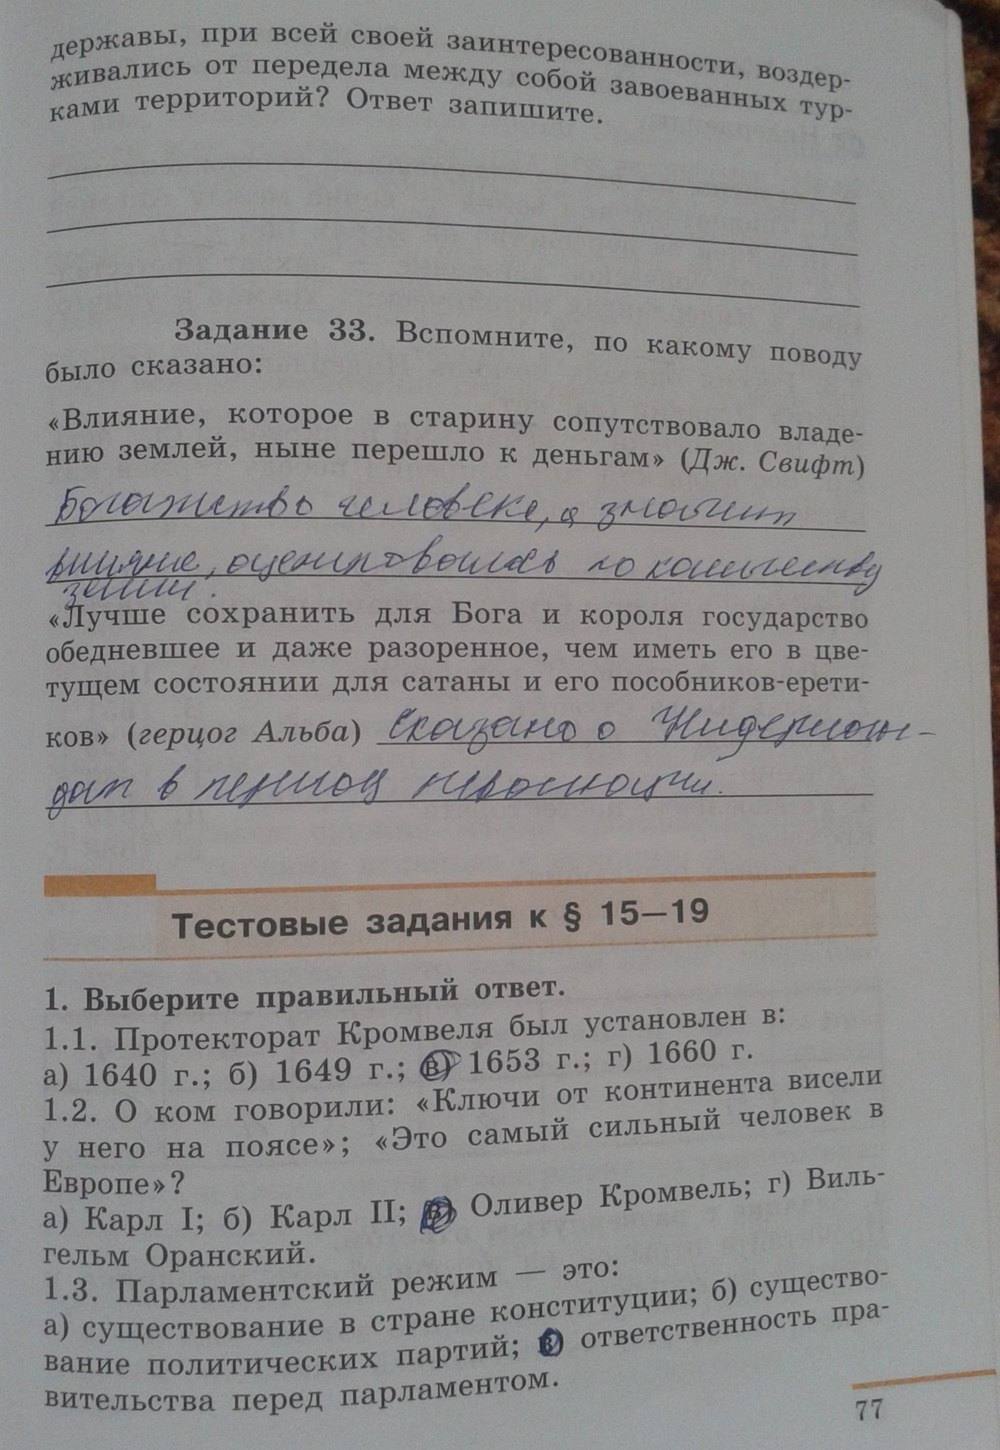 державы, при всей своей заинтересованности, воздер-
живались от передела между собой завоеванных тур-
ками территорий? Ответ запишите.
Задание 33. Вспомните, по какому поводу
было сказано:
«Влияние, которое в старину сопутствовало владе-
нию землей, ныне перешло к деньгам» (Дж. Свифт)
Богатство человека, а значит
влияние, оценивалось по количеству
земли.
«Лучше сохранить для Бога и короля государство
обедневшее и даже разоренное, чем иметь его в цве-
тущем состоянии для сатаны и его пособников-ерети-
ков» (герцог Альба) Сказано о Нидерлан-
дах в период
Тестовые задания к § 15—19
1. Выберите правильный ответ.
1.1. Протекторат Кромвеля был установлен в:
а) 1640 г.; б) 1649 г.; в) 1653 г.; г) 1660 г.
1.2. О ком говорили: «Ключи от континента висели
у него на поясе»; «Это самый сильный человек в
Европе»?
а) Карл I; б) Карл II; в) Оливер Кромвель; г) Виль-
гельм Оранский.
1.3. Парламентский режим — это:
а) существование в стране конституции; б) существо-
вание политических партий; в) ответственность пра-
вительства перед парламентом.
77